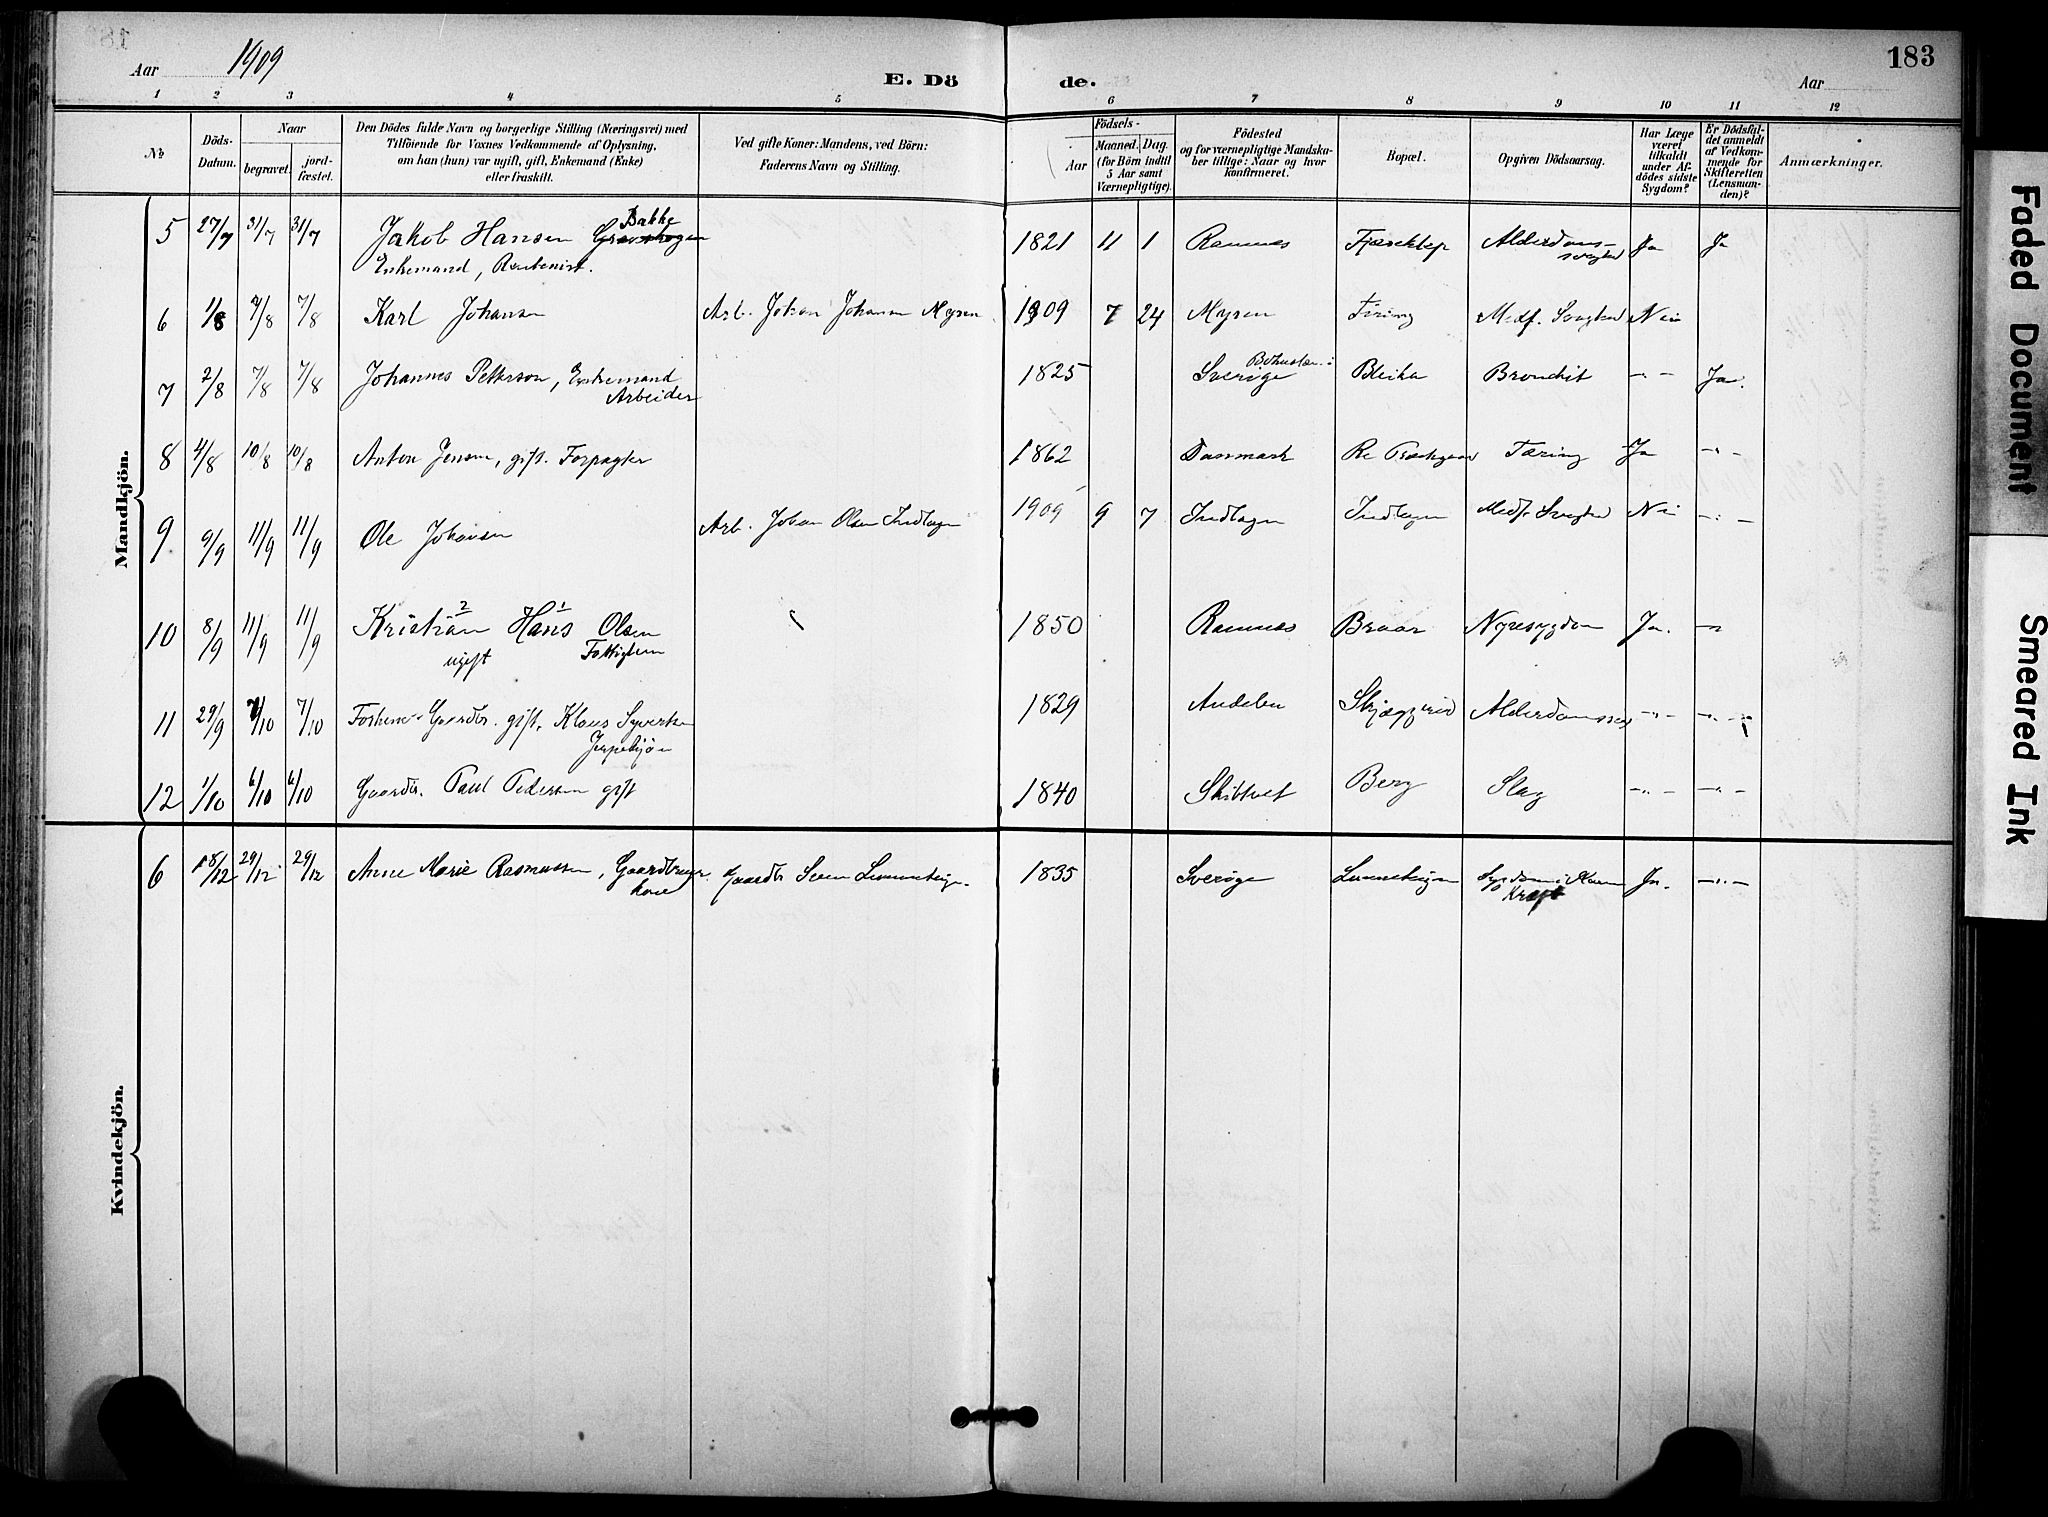 183
Aar 1909
E. Dö de.
Aar
1 2 3 4 5 6 7 8 9 10 11 12
No
Döds-Datum.
Naar
begravet.
jord-fæstet.
Den Dödes fulde Navn og borgerlige Stilling (Næringsvei) med
Tilföiende for Voxnes Vedkommende af Oplysning,
om han (hun) var ugift, gift, Enkemand (Enke)
eller fraskilt.
Ved gifte Koner: Mandens, ved Börn:
Faderens Navn og Stilling.
Födsels-
Aar
Maaned. Dag.
(for Börn indtil
5 Aar samt
Værnepligtige).
Födested
og for værnepligtige Mandska-
ber tillige: Naar og hvor
konfirmeret.
Bopæl.
Opgiven Dödsaarsag.
Har Læge
været
tilkaldt
under Af-
dödes sidste
Sygdom?
Er Dödsfal-
det anmeldt
af Vedkom-
mende for
Skifteretten
(Lensman-
den)?
Anmærkninger.
Mandkjön.
Bakke
5 27/7 31/7 31/7 Jakob Hansen 1821 11 1 Ramnes Alderdoms- Ja Ja
Enkemand, Rentenist. svaghed
6 1/8 7/8 7/8 Karl Johansen Arb. Johan Johansen Myren 1909 7 24 Myren Medf. Svaghed Nei
7 2/8 7/8 7/8 Johannes Petterson, Enkemand 1825 Sverige Bleika Bronchit -"- Ja.
Arbeider
8 4/8 10/8 10/8 Anton Jensen, gift. Forpagter 1862 Danmark Re Prestgaard Tæring Ja -"-
9 9/9 11/9 11/9 Ole Johansen Arb. Johan Olsen Indlagn 1909 9 7 Indlagn Indlagn Medf. Svaghed Nei -"-
10 8/9 11/9 11/9 Kristian 2 Hans 1 Olsen 1850 Ramnes Braar Nyresygdom Ja. -"-
ugift Fattiglem
11 29/9 7/10 7/10 Gaardbr. gift, Klaus Syvertsen 1829 Andebu Alderdomssv -"- -"-
12 1/10 6/10 6/10 Gaardbr. Paul Pedersen gift 1840 Skibtvet Berg Slag -"- -"-
Kvindekjön.
6 18/12 29/12 29/12 Anne Marie Rasmussen, Gaardbruger Gaardbr Søren 1835 Sverige Ja. -"-
kone Kræft
Faded Document
Smeared Ink